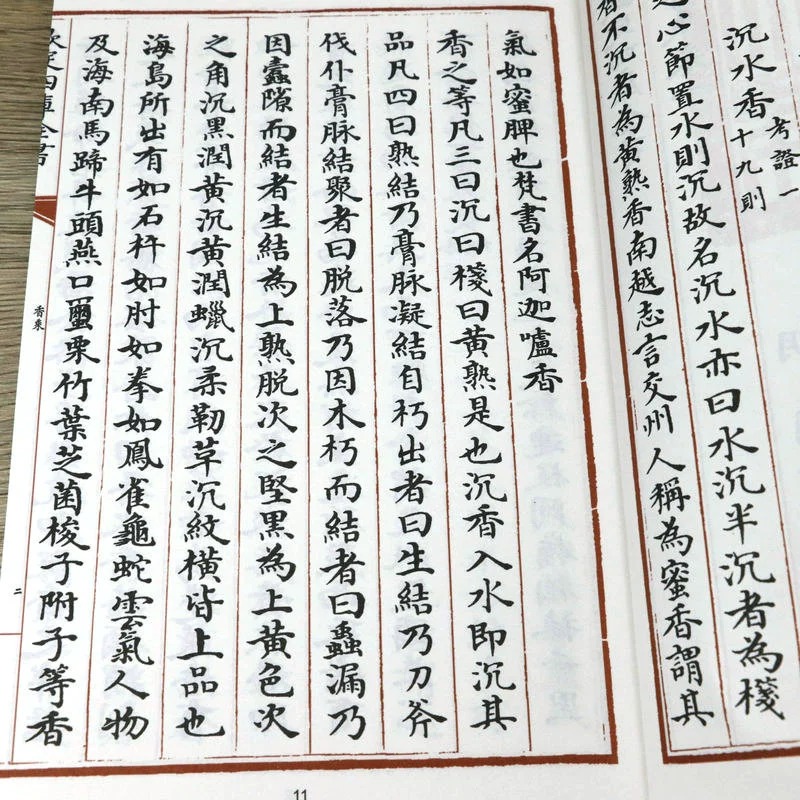 沉水香
考證一
十九則
之心節置水則沉故名沉水亦曰水沉半沉者為棧
香不沉者為黃熟香南越志言交州人稱為蜜香謂其
氣如蜜脾也梵書名阿迦嚧香
香之等凡三曰沉曰棧曰黃熟是也沉香入水即沉其
品凡四曰熟結乃膏脉凝結自朽出者曰生結乃刀斧
伐仆膏脉結聚者曰脫落乃因木朽而結者曰蟲漏乃
因蠹隙而結者生結為上熟脫次之堅黑為上黃色次
之角沉黑潤黃沉黃潤蠟沉柔韌草沉紋橫皆上品也
海島所出有如石杵如肘如拳如鳳雀龜蛇雲氣人物
及海南馬蹄牛頭燕口繭栗竹葉芝菌梭子附子等香
欽定四庫全書
香乘
二
11